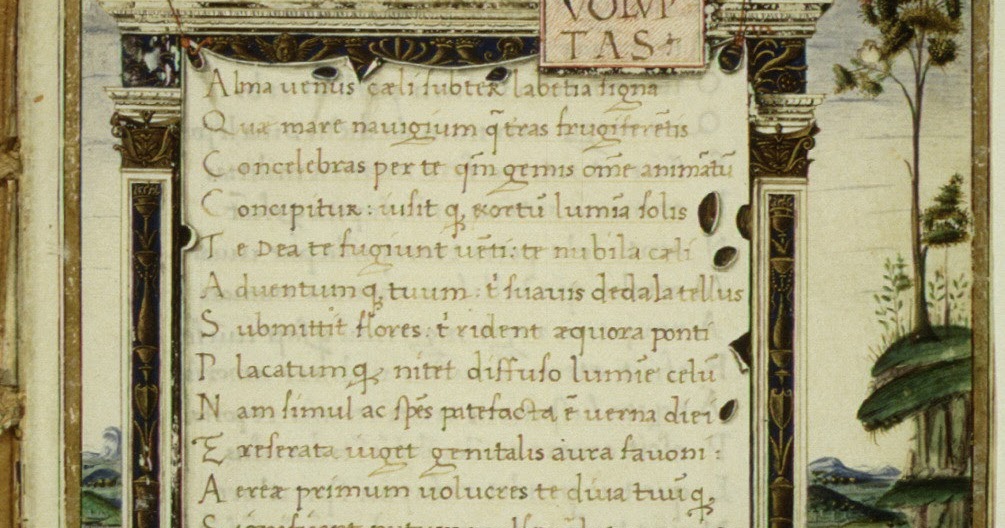 VOLVP
TAS
Alma uenus cæli subter labētia signa
Quæ mare nauigium q̄ t̄ras frugiferētis
Concelebras per te qm̄ genus om̄e animātū
Concipitur: uisit q; exortū lumīa solis
Te Dea te fugiunt uēti: te nubila cæli
Aduentumq; tuum: t' suauis dedala tellus
Submittit flores: t' rident æquora ponti
Placatumq; nitet diffuso lumīe celū
Nam simul ac spēs patefacta ē uerna diei
Et reserata uiget genitalis aura fauoni:
Aereæ primum uolucres te diua tuūq;